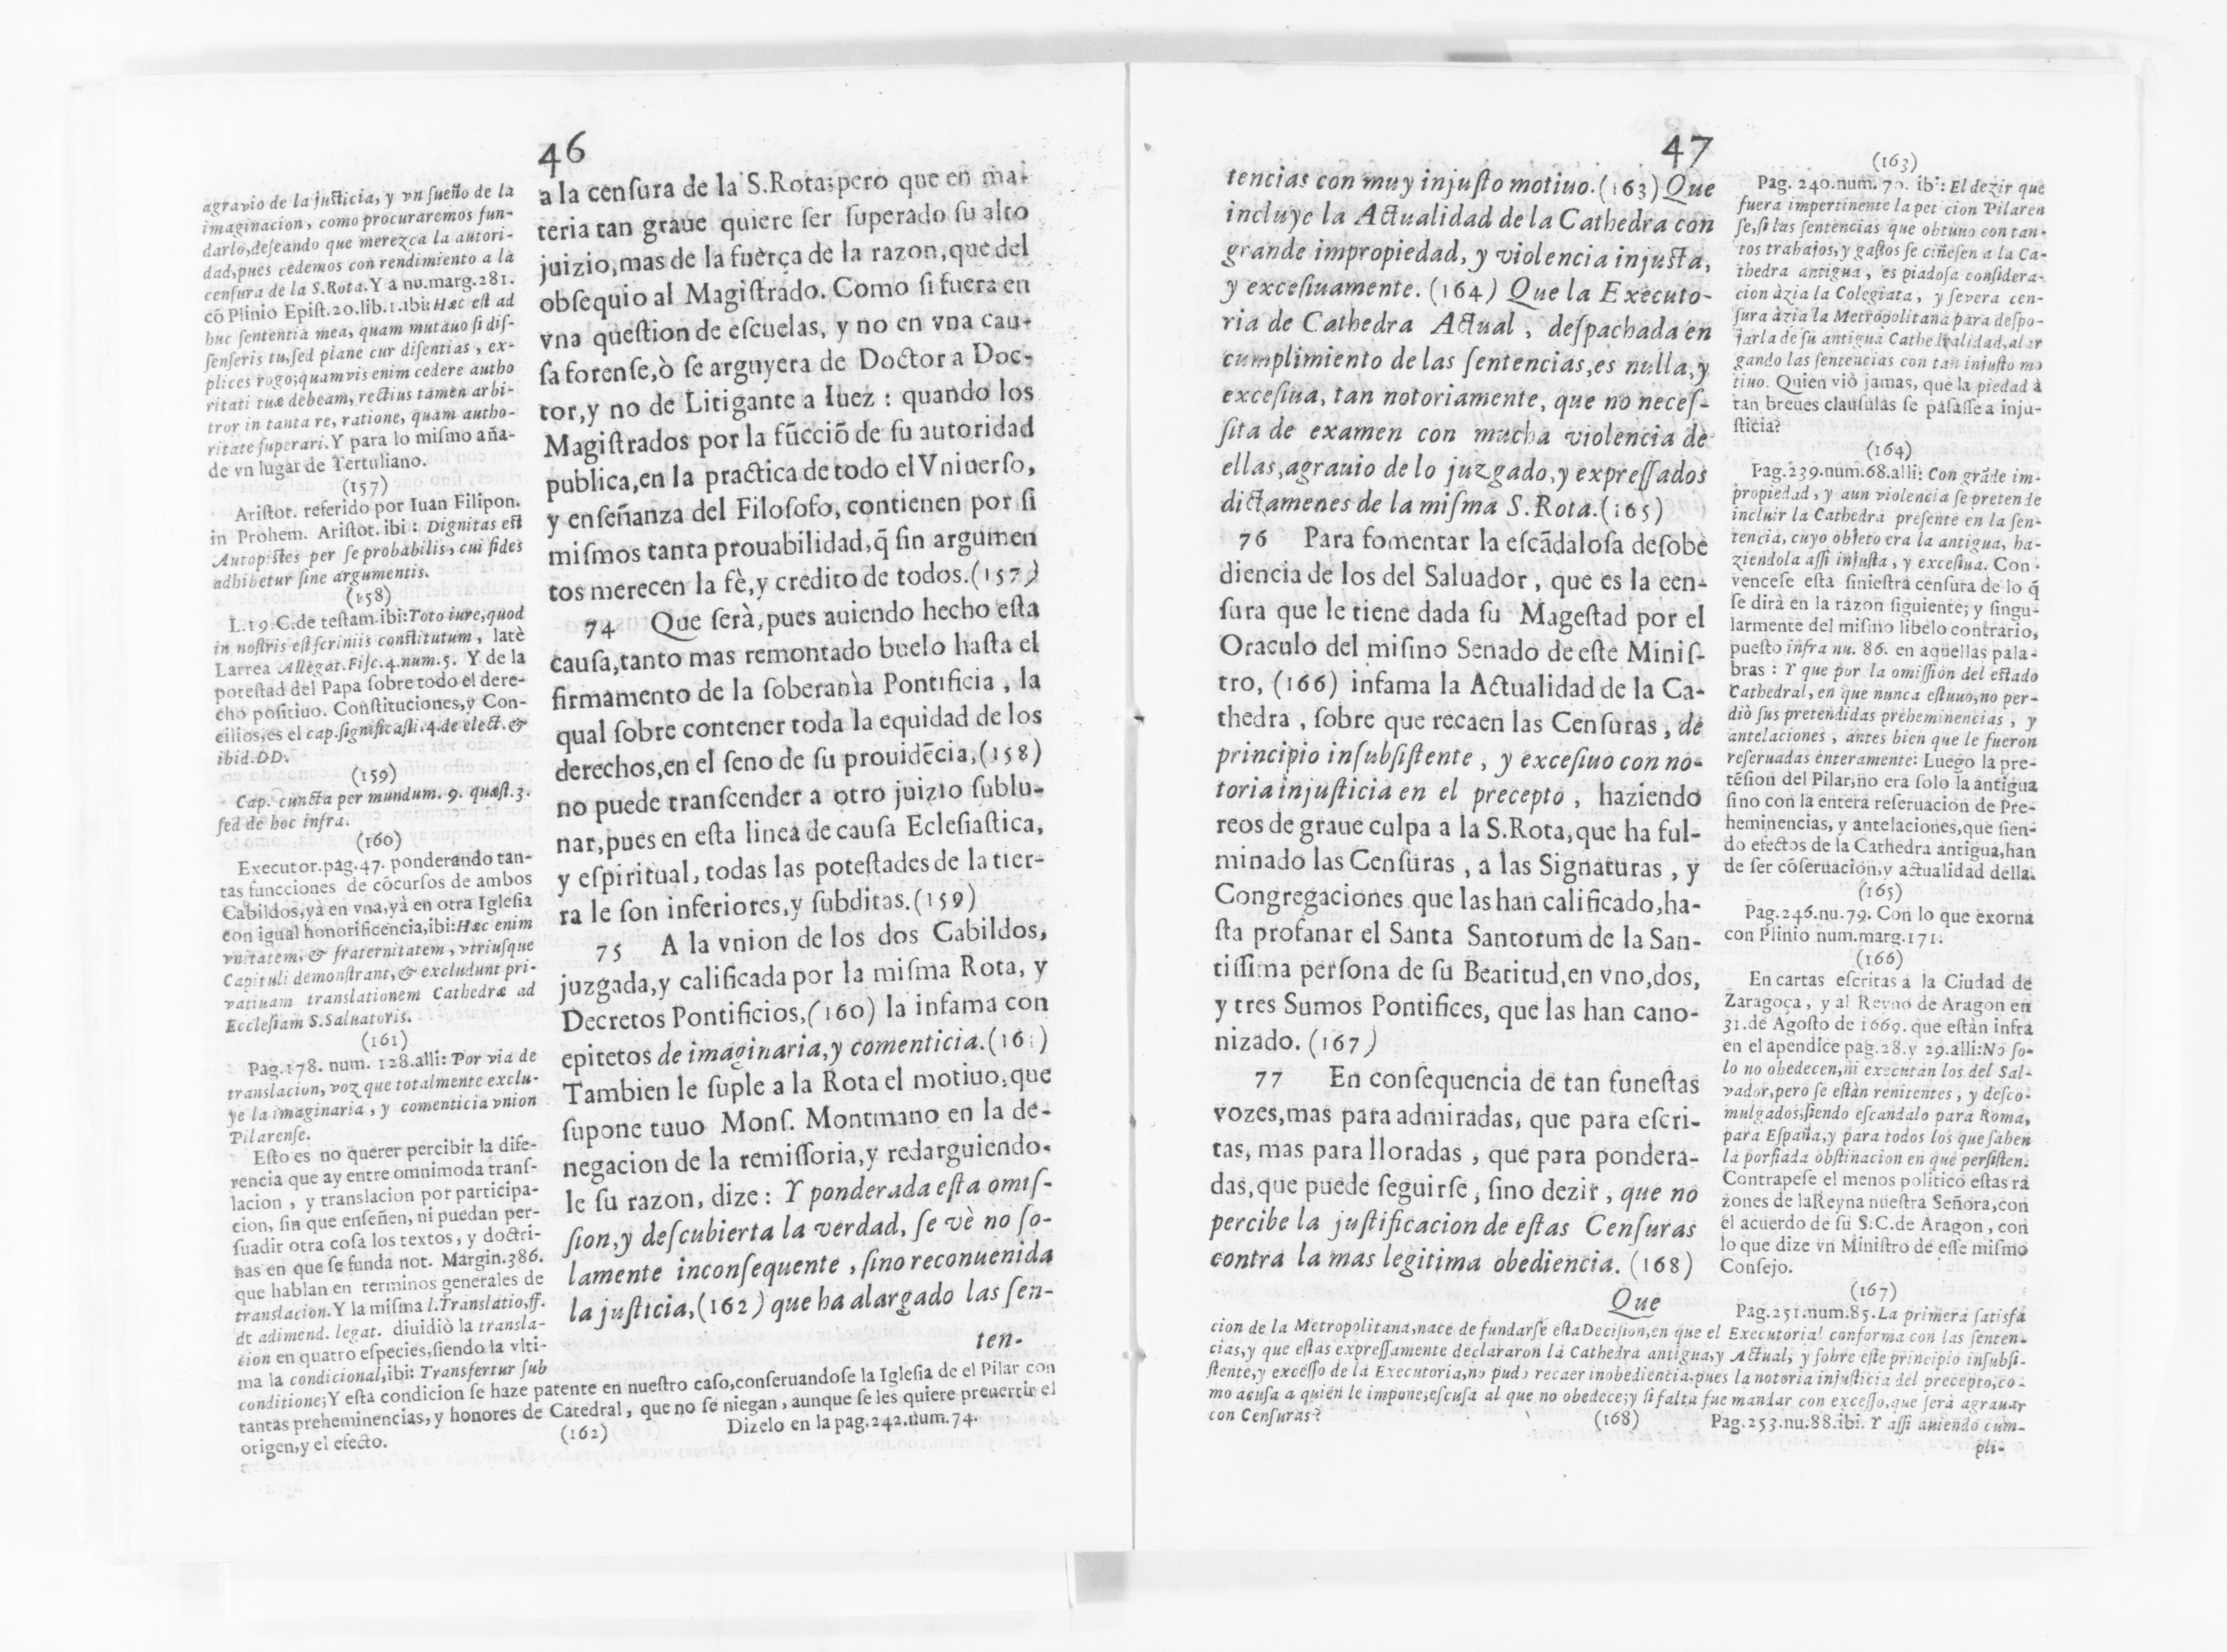 46
agravio de la justicia, y vn sueño de la
imaginacion, como procuraremos fun-
darlo,deseando que merezca la autori-
dad,pues cedemos con rendimiento a la
censura de la S.Rota.Y a nu.marg.281.
cõ Plinio Epist.20.lib.1.ibi:Hæc est ad
huc sententia mea, quam mutauo si dis-
senseris tu,sed plane cur disentias, ex-
plices rogo;quamvis enim cedere autho
ritati tuæ debeam, rectius tamen arbi-
tror in tanta re, ratione, quam autho-
ritate superari.Y para lo mismo aña-
de vn lugar de Tertuliano.
(157)
Aristot. referido por Iuan Filipon.
in Prohem. Aristot. ibi: Dignitas est
Autopistes per se probabilis, cui fides
adhibetur sine argumentis.
(158)
L.19.C.de testam.ibi:Toto iure,quod
in nostris est scriniis constitutum, latè
Larrea Allegat.Fisc.4.num.5. Y de la
potestad del Papa sobre todo el dere-
cho positiuo. Constituciones,y Con-
cilios,es el cap.significasti.4.de elect.&
ibid.DD.
(159)
Cap. cuncta per mundum. 9. quæst.3.
sed de hoc infra.
(160)
Executor.pag.47. ponderando tan-
tas funcciones de cõcursos de ambos
Cabildos,yà en vna,yà en otra Iglesia
con igual honorificencia,ibi:Hæc enim
vnitatem, & fraternitatem, vtriusque
Capituli demonstrant,& excludunt pri-
vatiuam translationem Cathedræ ad
Ecclesiam S.Saluatoris.
(161)
Pag.178. num. 128.alli: Por via de
translacion, voz que totalmente exclu-
ye la imaginaria, y comenticia vnion
Pilarense.
Esto es no querer percibir la dife-
rencia que ay entre omnimoda trans-
lacion, y translacion por participa-
cion, sin que enseñen, ni puedan per-
suadir otra cosa los textos, y doctri-
nas en que se funda not. Margin.386.
que hablan en terminos generales de
translacion.Y la misma l.Translatio,ff.
de adimend. legat. diuidiò la transla-
cion en quatro especies,siendo la vlti-
ma la condicional,ibi: Transfertur sub
conditione;Y esta condicion se haze patente en nuestro caso,conseruandose la Iglesia de el Pilar con
tantas preheminencias, y honores de Catedral, que no se niegan, aunque se les quiere preuertir el
origen,y el efecto.
(162) Dizelo en la pag.242.num.74.
a la censura de la S.Rota;pero que en ma-
teria tan graue quiere ser superado su alto
juizio,mas de la fuerça de la razon,que del
obsequio al Magistrado. Como si fuera en
vna question de escuelas, y no en vna cau-
sa forense,ò se arguyera de Doctor a Doc-
tor,y no de Litigante a Iuez : quando los
Magistrados por la fũcciõ de su autoridad
publica,en la practica de todo el Vniuerso,
y enseñanza del Filosofo, contienen por si
mismos tanta prouabilidad,q̃ sin argumen
tos merecen la fè,y credito de todos.(157)
74 Que serà,pues auiendo hecho esta
causa,tanto mas remontado buelo hasta el
firmamento de la soberanìa Pontificia, la
qual sobre contener toda la equidad de los
derechos,en el seno de su prouidẽcia,(158)
no puede transcender a otro juizio sublu-
nar,pues en esta linea de causa Eclesiastica,
y espiritual, todas las potestades de la tier-
ra le son inferiores,y subditas.(159)
75 A la vnion de los dos Cabildos,
juzgada,y calificada por la misma Rota, y
Decretos Pontificios,(160) la infama con
epitetos de imaginaria,y comenticia.(161)
Tambien le suple a la Rota el motiuo,que
supone tuuo Mons. Montmano en la de-
negacion de la remissoria,y redarguiendo-
le su razon, dize: Y ponderada esta omis-
sion,y descubierta la verdad, se vè no so-
lamente inconsequente, sino reconuenida
la justicia,(162) que ha alargado las sen-
ten-
47
tencias con muy injusto motiuo.(163) Que
incluye la Actualidad de la Cathedra con
grande impropiedad, y violencia injusta,
y excesiuamente.(164) Que la Executo-
ria de Cathedra Actual, despachada en
cumplimiento de las sentencias,es nulla,y
excesiua, tan notoriamente, que no neces-
sita de examen con mucha violencia de
ellas,agrauio de lo juzgado,y expressados
dictamenes de la misma S.Rota.(165)
76 Para fomentar la escãdalosa desobe
diencia de los del Saluador, que es la cen-
sura que le tiene dada su Magestad por el
Oraculo del mismo Senado de este Minis-
tro, (166) infama la Actualidad de la Ca-
thedra, sobre que recaen las Censuras, de
principio insubsistente, y excesiuo con no-
toria injusticia en el precepto, haziendo
reos de graue culpa a la S.Rota,que ha ful-
minado las Censuras, a las Signaturas, y
Congregaciones que las han calificado,ha-
sta profanar el Santa Santorum de la San-
tissima persona de su Beatitud,en vno,dos,
y tres Sumos Pontifices, que las han cano-
nizado. (167)
77 En consequencia de tan funestas
vozes,mas para admiradas, que para escri-
tas, mas para lloradas, que para pondera-
das,que puede seguirse, sino dezir, que no
percibe la justificacion de estas Censuras
contra la mas legitima obediencia. (168)
Que
(163)
Pag. 240.num.70. ibi: El dezir que
fuera impertinente la peticion Pilaren
se,si las sentencias que obtuuo con tan-
tos trabajos,y gastos se ciñesen a la Ca-
thedra antigua, es piadosa considera-
cion àzia la Colegiata, y severa cen-
sura àzia la Metropolitana para despo-
jarla de su antigua Cathedralidad,alar
gando las sentencias con tan injusto mo
tiuo. Quien viò jamas, que la piedad à
tan breues clausulas se pasasse a inju-
sticia?
(164)
Pag.239.num.68.alli: Con grãde im-
propiedad, y aun violencia se pretende
incluir la Cathedra presente en la sen-
tencia, cuyo objeto era la antigua, ha-
ziendola assi injusta, y excesiua. Con-
vencese esta siniestra censura de lo q̃
se dirà en la razon siguiente; y singu-
larmente del mismo libelo contrario,
puesto infra nu. 86. en aquellas pala-
bras : Y que por la omission del estado
Cathedral, en que nunca estuuo,no per-
diò sus pretendidas preheminencias, y
antelaciones, antes bien que le fueron
reseruadas enteramente: Luego la pre-
tẽsion del Pilar,no era solo la antigua
sino con la entera reseruacion de Pre-
heminencias, y antelaciones,que sien-
do efectos de la Cathedra antigua,han
de ser cõseruacion,y actualidad della.
(165)
Pag.246.nu.79. Con lo que exorna
con Plinio num.marg.171.
(166)
En cartas escritas a la Ciudad de
Zaragoça, y al Reyno de Aragon en
31.de Agosto de 1669. que estàn infra
en el apendice pag.28.y 29.alli:No so-
lo no obedecen,ni executan los del Sal-
vador,pero se estàn renitentes, y desco-
mulgados,siendo escandalo para Roma,
para España,y para todos los que saben
la porfiada obstinacion en que persisten.
Contrapese el menos politico estas ra
zones de la Reyna nuestra Señora,con
el acuerdo de su S.C.de Aragon, con
lo que dize vn Ministro de esse mismo
Consejo.
(167)
Pag.251.num.85.La primera satisfa
cion de la Metropolitana,nace de fundarse esta Decision,en que el Executorial conforma con las senten-
cias,y que estas expressamente declararon la Cathedra antigua,y Actual, y sobre este principio insubsi-
stente,y excesso de la Executoria,no pudo recaer inobediencia,pues la notoria injusticia del precepto,co-
mo acusa a quien le impone;escusa al que no obedece;y si falta fue mandar con excesso,que serà agrauar
con Censuras?
(168) Pag.253.nu.88.ibi. Y assi auiendo cum-
pli-